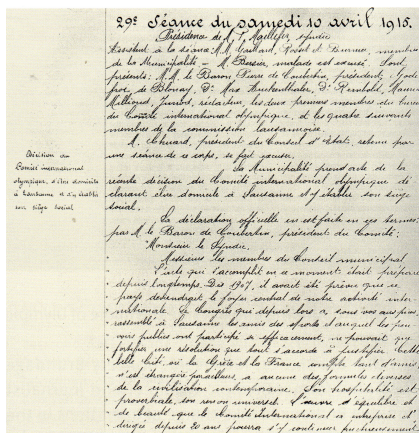 29e Séance du samedi 10 avril 1915.
Présidence de M. P. Maillefer, syndic
Assistent à la séance MM. Gaillard, Rosset et membres
de la Municipalité - M. malade est excusé. Sont
présents: M.M. le Baron Pierre de Coubertin, président, Gode
froy de Blonay, Dr Mrs Dr Reinbold, Maurice
Millioud, rédacteur, les deux premiers membres du
du Comité international olympique, et les quatre suivants
membres de la commission lausannoise.
M. président du Conseil d'Etat, retenu par
une séance de ce corps, se fait excuser.
Décision du
Comité international
olympique, d'élire domicile
à Lausanne et d'y établir
son siège social
La Municipalité prend acte de la
récente décision du Comité international olympique dé
clarant élire domicile à Lausanne et y établir son siège
social.
La déclaration officielle en est faite en ces termes
par M. le Baron de Coubertin, président du Comité:
Monsieur le Syndic,
Messieurs les membres du Conseil municipal
L'acte qui s'accomplit en ce moment était préparé
depuis longtemps. Dès 1907, il avait été prévu que ce
pays deviendrait le foyer central de notre activité inter
nationale. Le Congrès que depuis lors a sous vos auspices
rassemblé à Lausanne les amis des sports et auquel les pou
voirs publics ont participé si efficacement, ne pouvait que
fortifier une résolution que tout s'accorde à justifier. Cette
belle cité, où la Grèce et la France compte tant d'amis
n'est étrangère par ailleurs à aucune des formules diverses
de la civilisation contemporaine. Son hospitalité est
proverbiale, son renom universel. L'oeuvre d'équilibre et
de beauté que le Comité International a entreprise et
dirigée depuis 20 ans pourra s'y continuer